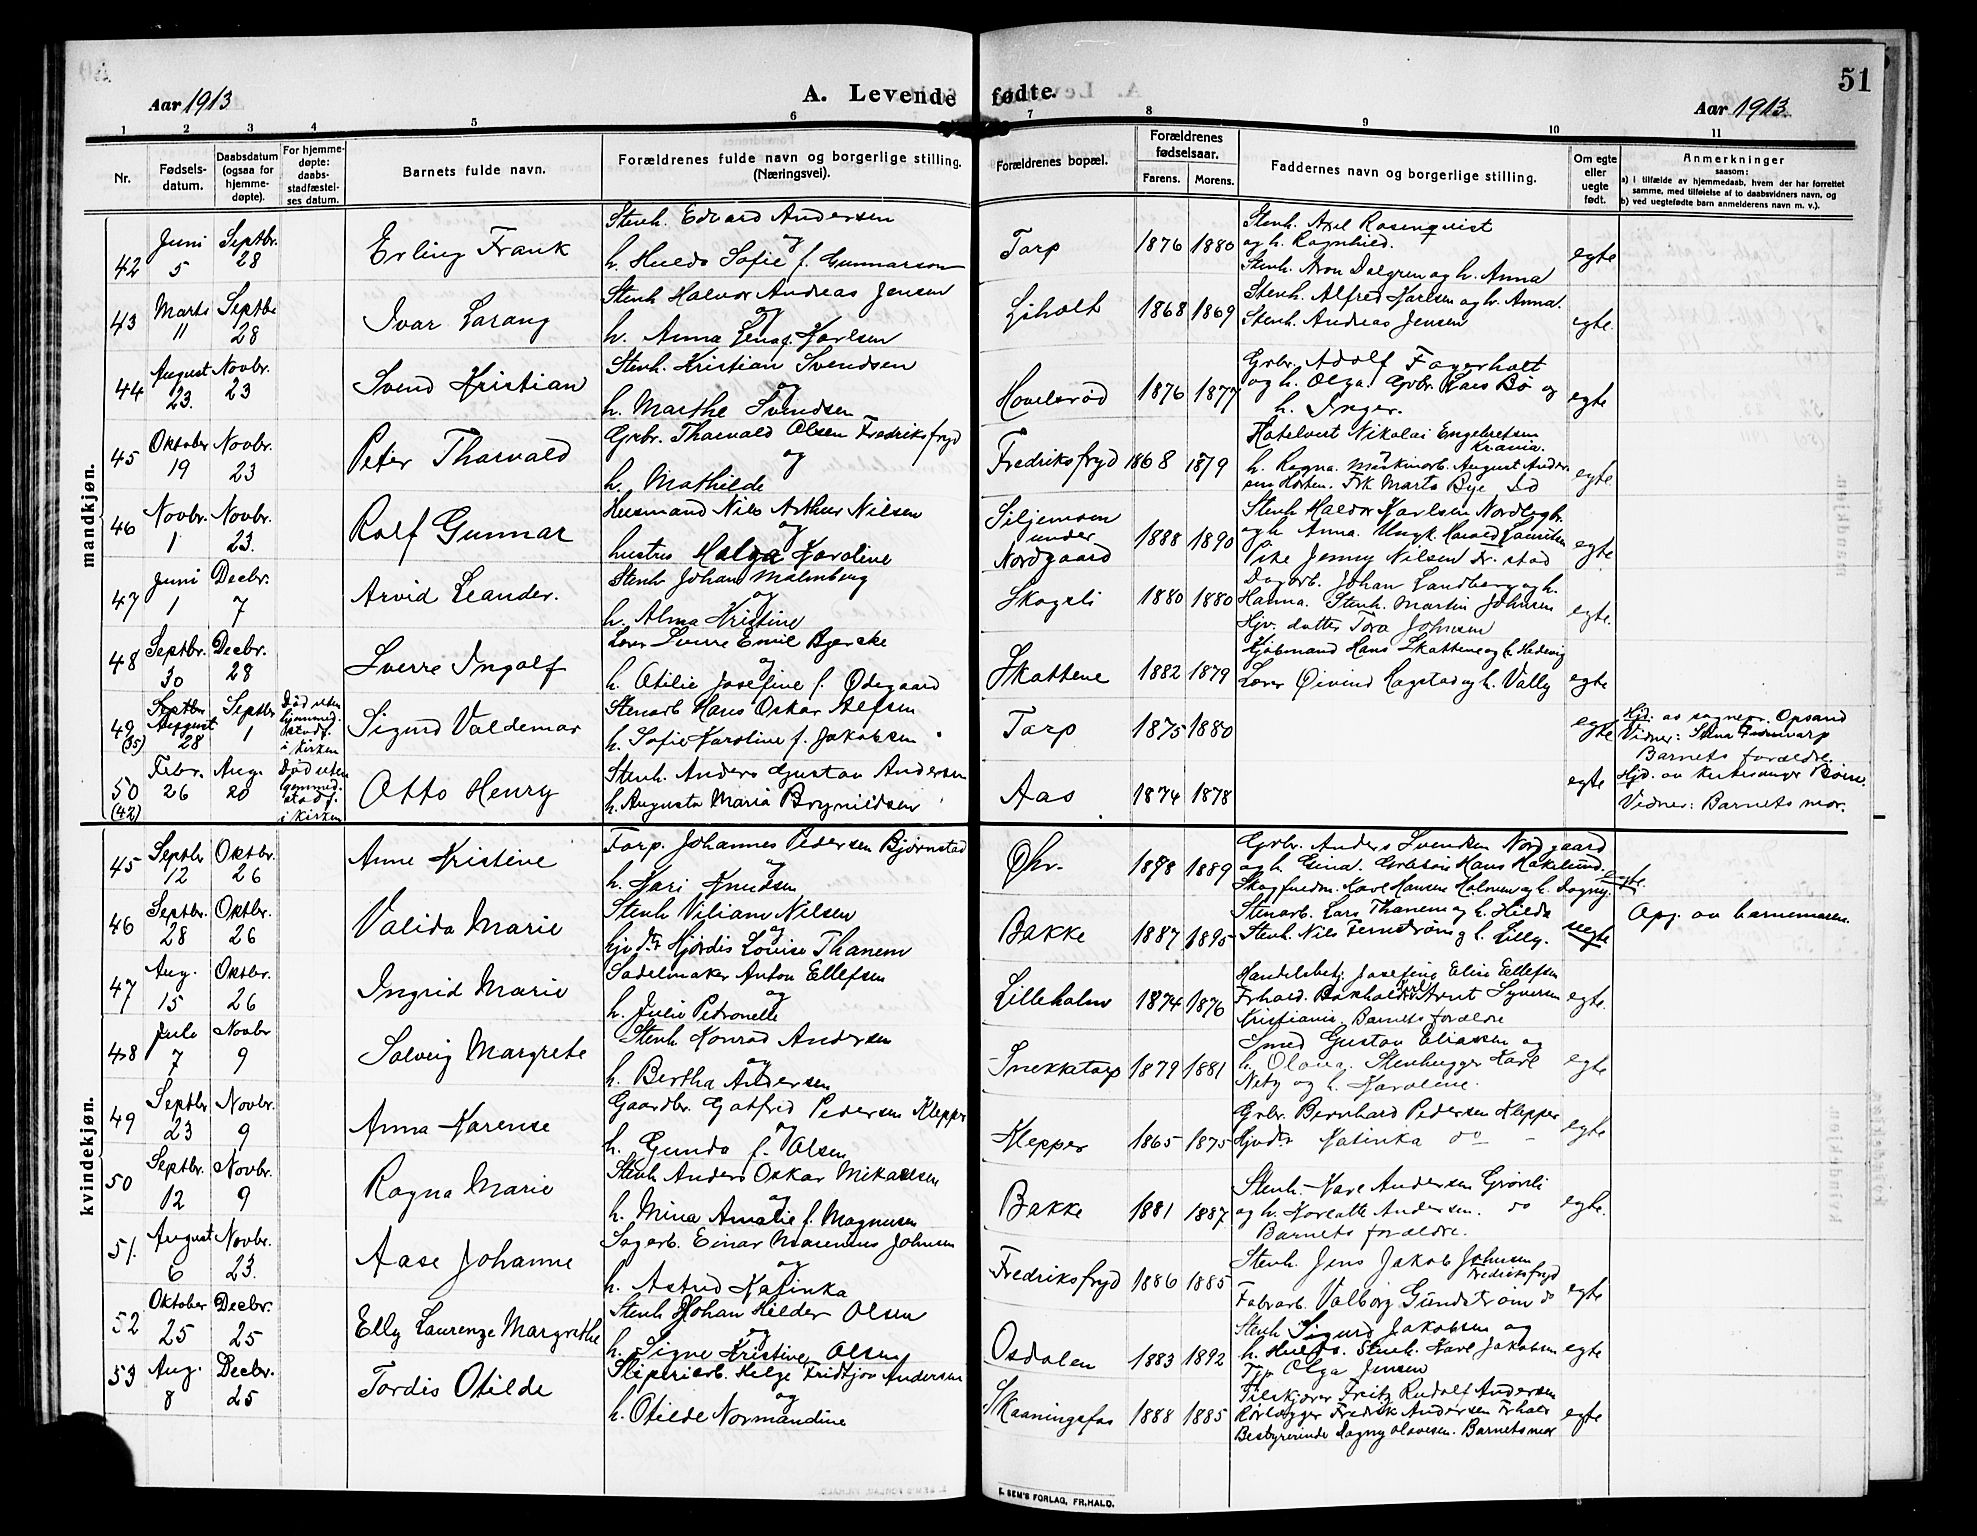 51
Aar 1913
A. Levende fødte.
Aar 1913
1 2 3 4 5 6 7 8 9 10 11
Nr.
Fødsels-
datum.
Daabsdatum
(ogsaa for
hjemme-
døpte).
For hjemme-
døpte:
daabs-
stadfæstel-
ses datum.
Barnets fulde navn.
Forældrenes fulde navn og borgerlige stilling.
(Næringsvei).
Forældrenes bopæl.
Forældrenes
fødselsaar.
Farens. Morens.
Faddernes navn og borgerlige stilling.
Om egte
eller
uegte
født.
Anmerkninger
saasom:
a) i tilfælde av hjemmedaab, hvem der har forrettet
samme, med tilføielse af to daabsvidners navn, og
b) ved uegtefødte barn anmelderens navn m. v.).
mandkjøn.
42
Juni
5
Septbr.
28
Erling Frank
Stenh. Edvard Andersen
og
h. Hulda Sofie f. Gunnarson
Torp
1876 1880
Stenh. Axel Rosenqvist
og h. Ragnhild.
Stenh. Aron Dalgren og h. Anna
egte
43
Marts
11
Septbr
28
Ivar Larang
Stenh Halvor Andreas Jensen
og
h. Anna Lena f. Karlsen
Liholt
1868 1869
Stenh. Alfred Karlsen og h. Anna.
Stenh. Andreas Jensen
egte.
44
August
23.
Novbr.
23
Svend Kristian
Stenh. Kristian Svendsen
og
h. Marthe Svendsen
Hovelsrød
1876 1877
Grbr. Adolf Fagerholt
og h. Olga. Grbr. Lars Bø og
h. Inger.
egte
45
Oktober
19
Novbr.
23
Peter Thorvald
Grbr. Thorvald Olsen Fredriksfryd
og
h. Mathilde
Fredriksfryd
1868 1879
Hotelvert Nikolai Engebretsen
Krania.
h. Ragna. Maskinarb. August Ander
sen Horten. Frk Marta Bye
egte
46
Novbr.
1
Novbr.
23.
Rolf Gunnar
Husmand Nils Arthur Nilsen
og
hustru Helga Karoline
Siljemoen
under
Nordgaard
1888 1890
Stenh Haldor Karlsen
og h Anna. Ungk. Harald Lauritsen
Pike Jenny Nilsen Fr. stad
egte
47
Juni
1
Decbr.
7
Arvid Leander.
Stenh Johan Malmberg
og
h. Alma Kristine
Skogsli
1880 1880
Dagarb. Johan Landberg og h.
Hanna. Stenh. Martin Johnsen
Hjv. datter Tora Johnsen
egte.
48
Septbr.
30
Decbr.
28
Sverre Ingolf
Lærer Sverre Emil Bjercke
og
h. Otilie Josefine f. Ødegaard
Skattene
1882 1879
Kjøbmand Hans Skattene og h. Hedevig
Lærer Øivind Hagstad og h. Vally
egte
49
(35)
Septbr
August
28
Septbr
1
Død uten
hjemmed.
stadf.
i kirken
Sigurd Valdemar
Stenarb Hans Oskar Alfsen
h. Sofie Karoline f. Jakobsen
Torp
1875 1880
egte
Hjd. av sogнepr. Opsand
Barnets forældre.
50
(42)
Febr.
26
Aug.
20
Død uten
hjemmed.
stadf.
i kirken
Otto Henry
Stenh. Anders Gustav Andersen
h. Augusta Maria Brynildsen
Aas
1874 1878
egte
Hjd. av kirkesanger Böhn.
Vidner: Barnets mor.
kvindekjøn.
45
Septbr
12
Oktbr.
26
Anne Kristine
Forp. Johannes Pedersen Bjørnstad
og
h. Kari Knudsen
Øhr.
1878 1889
Grbr. Anders Svendsen Nordgaard
og h. Gina. Hans Hakelund.
Skogfuldm. Karl Hansen Holmen og h. Dagny
egte.
46
Septbr.
28
Oktbr.
26
Valida Marie
Stenh Viliam Nilsen
og
hjv. dtr Hjørdis Louise Thanem
Bakke
1887 1895
Stenarb. Lars Thanem og h. Hilda
Stenh. Nils Fernstrøm og h. Lilly.
uegte
Opg. av barnemoren.
47
Aug.
15
Oktbr.
26
Ingrid Marie
Sadelmaker Anton Ellefsen
og
h. Julie Petronelle
Lilleholm
1874 1876
Handelsbetj. Josefine Elise Ellefsen
Frhald. Bokholder Arnt Syversen
Kristiania. Barnets forældre
egte.
48
Juli
7
Novbr
9
Solveig Margrete
Stenh Konrad Andersen
og
h. Bertha Andersen
Snekketorp
1879 1881
Smed Gustav Eliassen og
h. Olava. Stenhugger Karl
Netz og h. Karoline.
egte
49
Septbr
23
Novbr.
9
Anna Karense
Gaardbr. Gotfred Pedersen Klepper
og
h. Gunda f. Olsen
Klepper
1865 1875
Grbr. Bernhard Pedersen Klepper
Hjvdtr Katinka do
egte
50
Septbr.
12
Novbr.
9
Ragna Marie
Stenh Anders Oskar Mikaelsen
og
h. Mina Amalie f. Magnusen
Bakke
1881 1887
Stenh. Karl Andersen Grønli
og h. Andersen. do
Barnets forældre.
egte.
51.
August
6
Novbr.
23.
Aase Johanne
Sagarb. Einar Marenius Johnsen
og
h. Astrid Katinka
Fredriksfryd
1886 1885
Stenh. Jens Jakob Johnsen
Fredriksfryd
Fabrarb. Valborg Gundstrøm do
egte
52
Oktober
25
Decbr.
25
Elly Laurenze Margrethe
Stenh Johan Hilder Olsen
og
h. Signe Kristine Olsen
Osdalen
1883 1892
Stenh Sigurd Jakobsen og
h. Hulda. Stenh. Karl Jakobsen
Tjp Olga Jensen
egte
53
Aug.
8
Decbr.
25
Tordis Otilde
Sliperiarb. Helge Fridtjov Andersen
og
h. Otilde Normandine
Skaaningsfos
1888 1885
Filskjærer Fritz Rudolf Andersen
Rørlægger Fredrik Andersen Frhald
Bestyrerinde Dagny Olavesen. Barnets mor
egte
E. SEM'S FORLAG, FR.HALD.